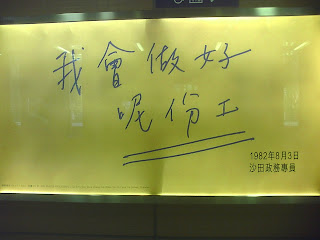 我會做好
呢份工
1982年8月3日
沙田政務專員